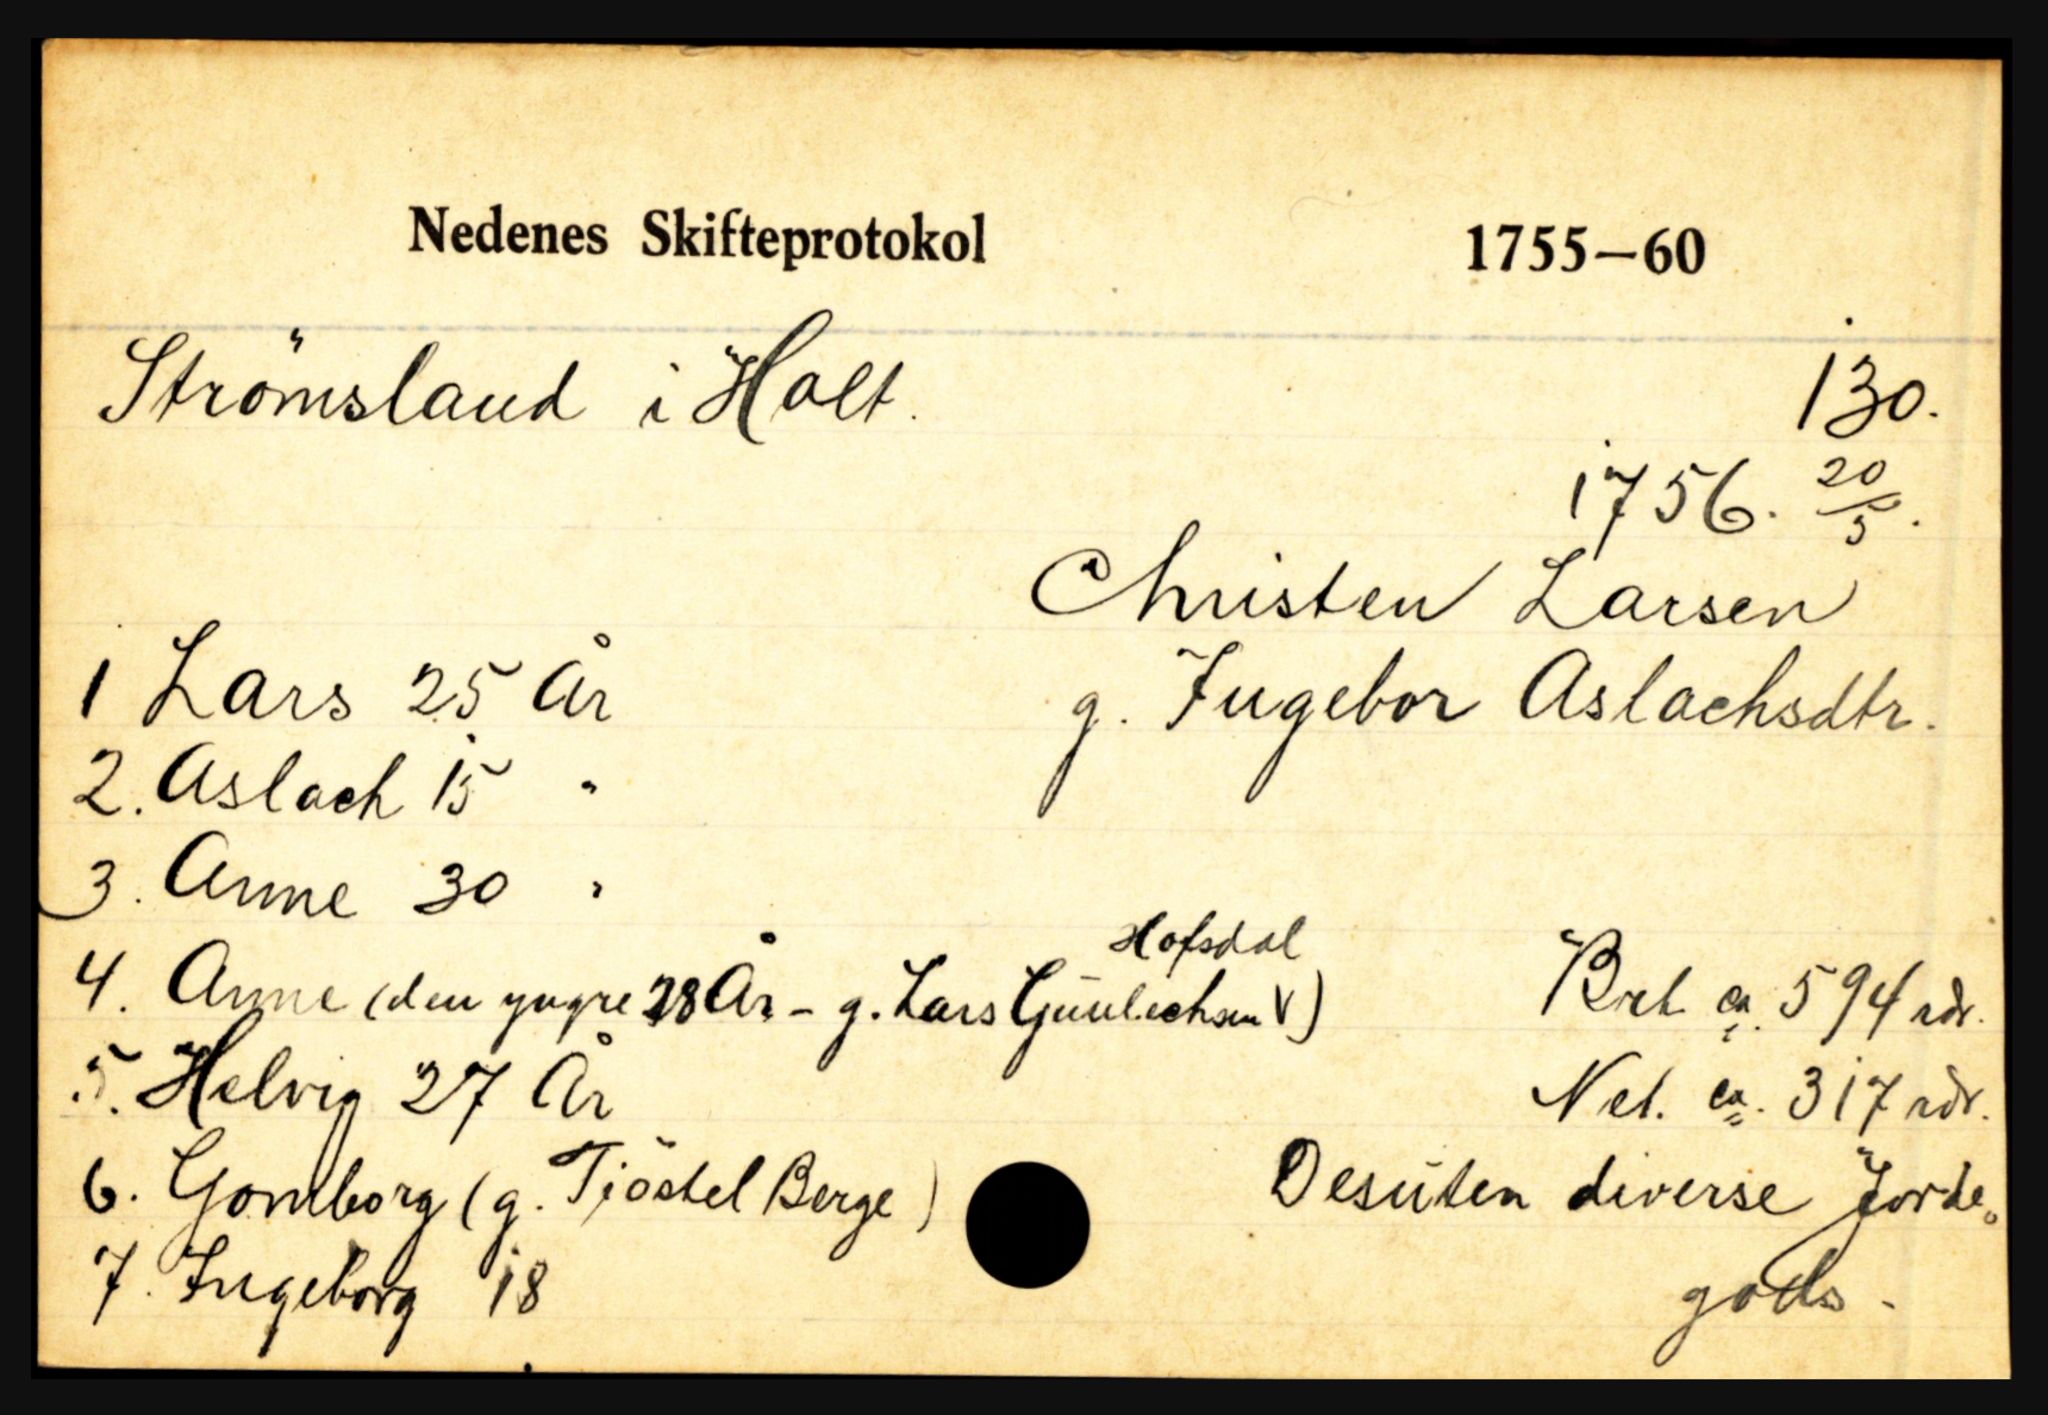 Nedenes Skifteprotokol 1755–60
Strömsland i Holt. 130.
1756. 20/5.
Christen Larsen
g. Ingebor Aslachsdtr.
1 Lars 25 År
2. Aslach 15 "
3. Anne 30 "
Hofsdal
4. Anne (den yngre 28 År - g. Lars Gunlechsen V)
5. Helvig 27 År
6. Gomborg (g. Tjöstel Berge)
7. Ingeborg 18
Brt. ca. 594 rdr.
Net. ca. 317 rdr.
Desuten diverse Jorde-
gods.